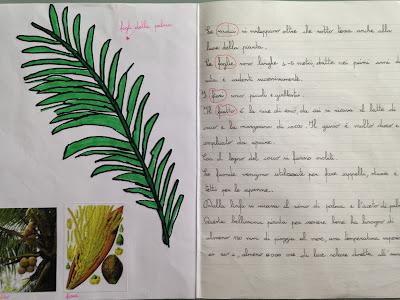 foglie della palma
frutto
fiore
Le radici si sviluppano oltre che sotto terra anche alla
base della pianta.
Le foglie sono lunghe 4-6 metri, dritte nei primi anni di
vita e cadenti successivamente.
I fiori sono piccoli e giallastri.
Il frutto è la noce di cocco, da cui si ricava il latte di
cocco e la margarina di cocco. Il guscio è molto duro e
Con il legno del cocco si fanno mobili.
Le foglie vengono utilizzate per fare cappelli, stuoie e
tetti per le capanne.
Dalla linfa si ricava il vino di palma e l'aceto di palma.
Questa bellissima pianta per vivere bene ha bisogno di
almeno 150 mm di pioggia al mese, una temperatura superiore